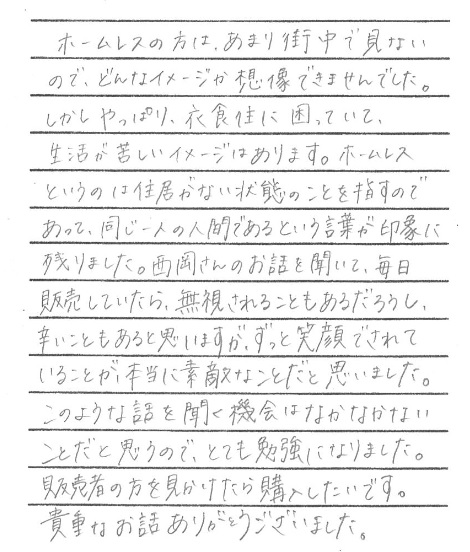 ホームレスの方は、あまり街中で見ない
ので、どんなイメージか想像できませんでした。
しかしやっぱり、衣食住に困っていて、
生活が苦しいイメージはあります。ホームレス
というのは住居がない状態のことを指すので
あって、同じ一人の人間であるという言葉が印象に
残りました。西岡さんのお話を聞いて、毎日
販売していたら、無視されることもあるだろうし、
辛いこともあると思いますが、ずっと笑顔でされて
いることが、本当に素敵なことだと思いました。
このような話を聞く機会はなかなかない
ことだと思うので、とても勉強になりました。
販売者の方を見かけたら購入したいです。
貴重なお話ありがとうございました。